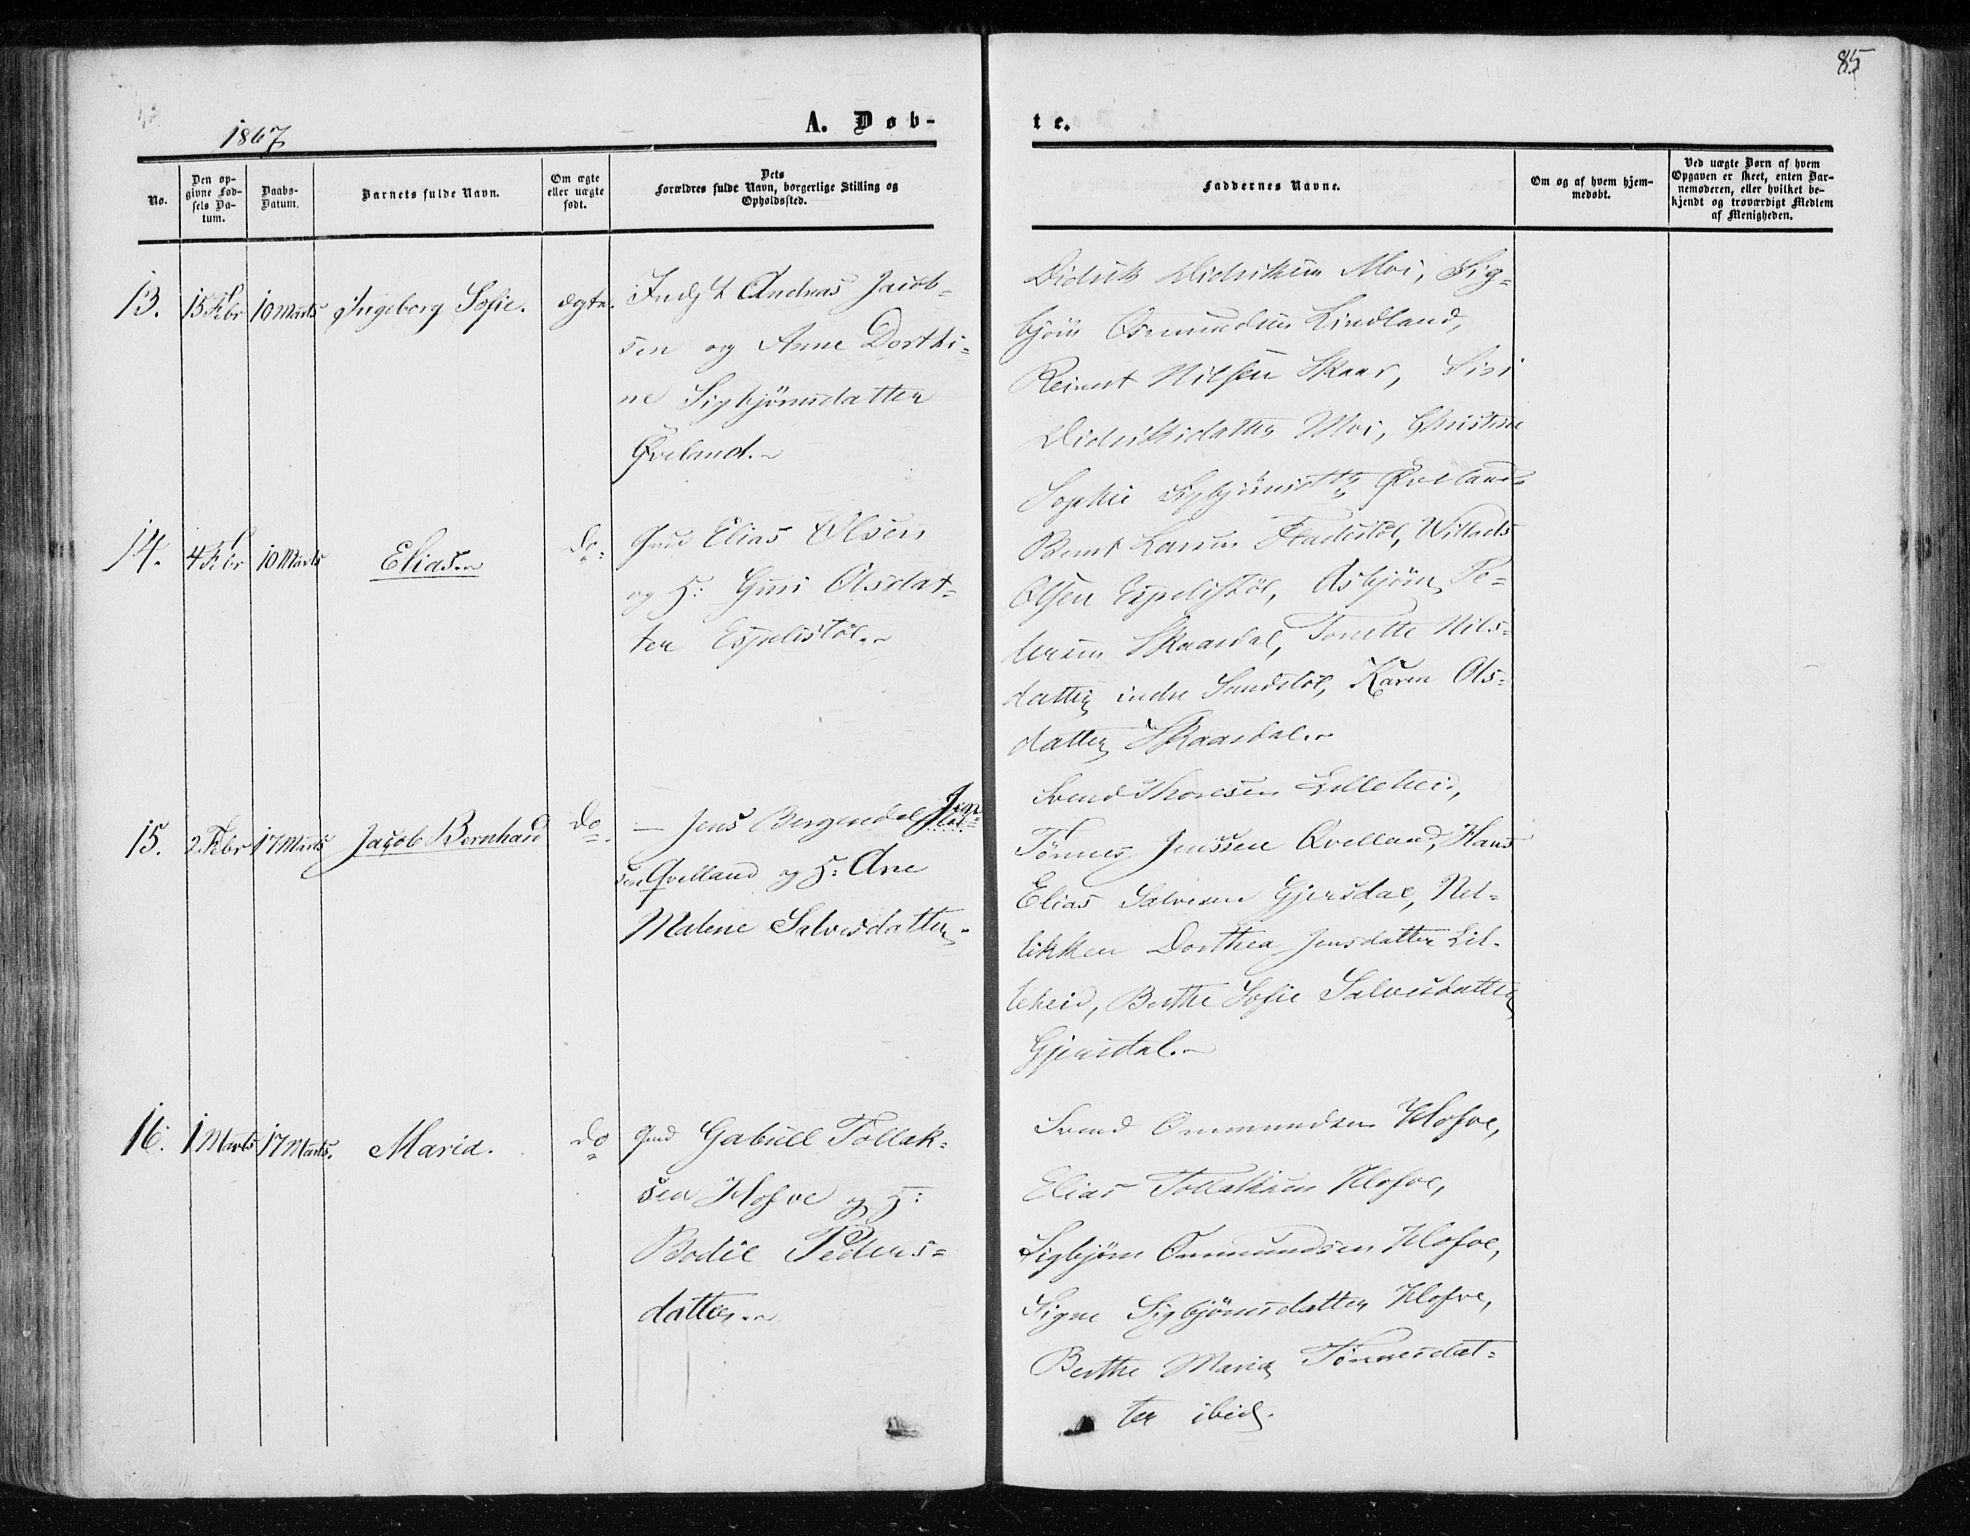 85
1867
A. Døb-
te.
No.
Den op-
givne Fød-
sels Da-
tum.
Daabs-
Datum.
Barnets fulde Navn.
Om ægte
eller uægte
født.
Dets
Forældres fulde Navn, borgerlige Stilling og
Opholdssted.
Faddernes Navne.
Om og af hvem hjem-
medøbt.
Ved uægte Børn af hvem
Opgaven er skeet, enten Bar-
nemoderen, eller hvilket be-
kjendt og troværdigt Medlem
af Menigheden.
13. 15 Febr 10 Marts Ingeborg Sofie. ægte.
Andreas Jacob-
sen og Anne Dorthi-
ne Sigbjørnsdatter
Qveland.
Didrik Didriksen Moi, Sig-
bjørn Osmundsen Lindland,
Reinert Nilsen Skaar, Siri
Didriksdatter Moi, Christine
Sophie Sigbjørnsdtr Qveland
14. 4 Febr 10 Marts Elias. do.
Gmd Elias Olsen
og H: Guri Olsdat-
ter Espelistøl.
Bernt Larsen Stadestøl, Willads
Olsen Espelistøl, Asbjørn Pe-
dersen Skaardal, Tonette Nils-
datter indre Sandstøl, Karen Ols-
datter Skaardal.
15. 2 Febr 17 Marts Jacob Bernhard do.
— Jens Bergendal
sen Qvelland og H: Ane
Malene Salvesdatter.
Svend Thoresen Lilleheid,
Tønnes Jenssen Qvelland, Hans
Elias Salvesen Gjersdal, Nel-
likken Dorthea Jensdatter Lil-
leheid, Berthe Sofie Salvesdatter
Gjersdal.
16. 1 Marts 17 Marts. Maria. do
Gmd Gabriel Tollak-
sen Klofve og H:
Bodil Peders-
datter.
Svend Ommundsen Klofve,
Elias Tollaksen Klofve,
Sigbjørn Ommundsen Klofve,
Signe Sigbjørnsdatter Klofve,
Berthe Maria Tønnesdat-
ter ibid.